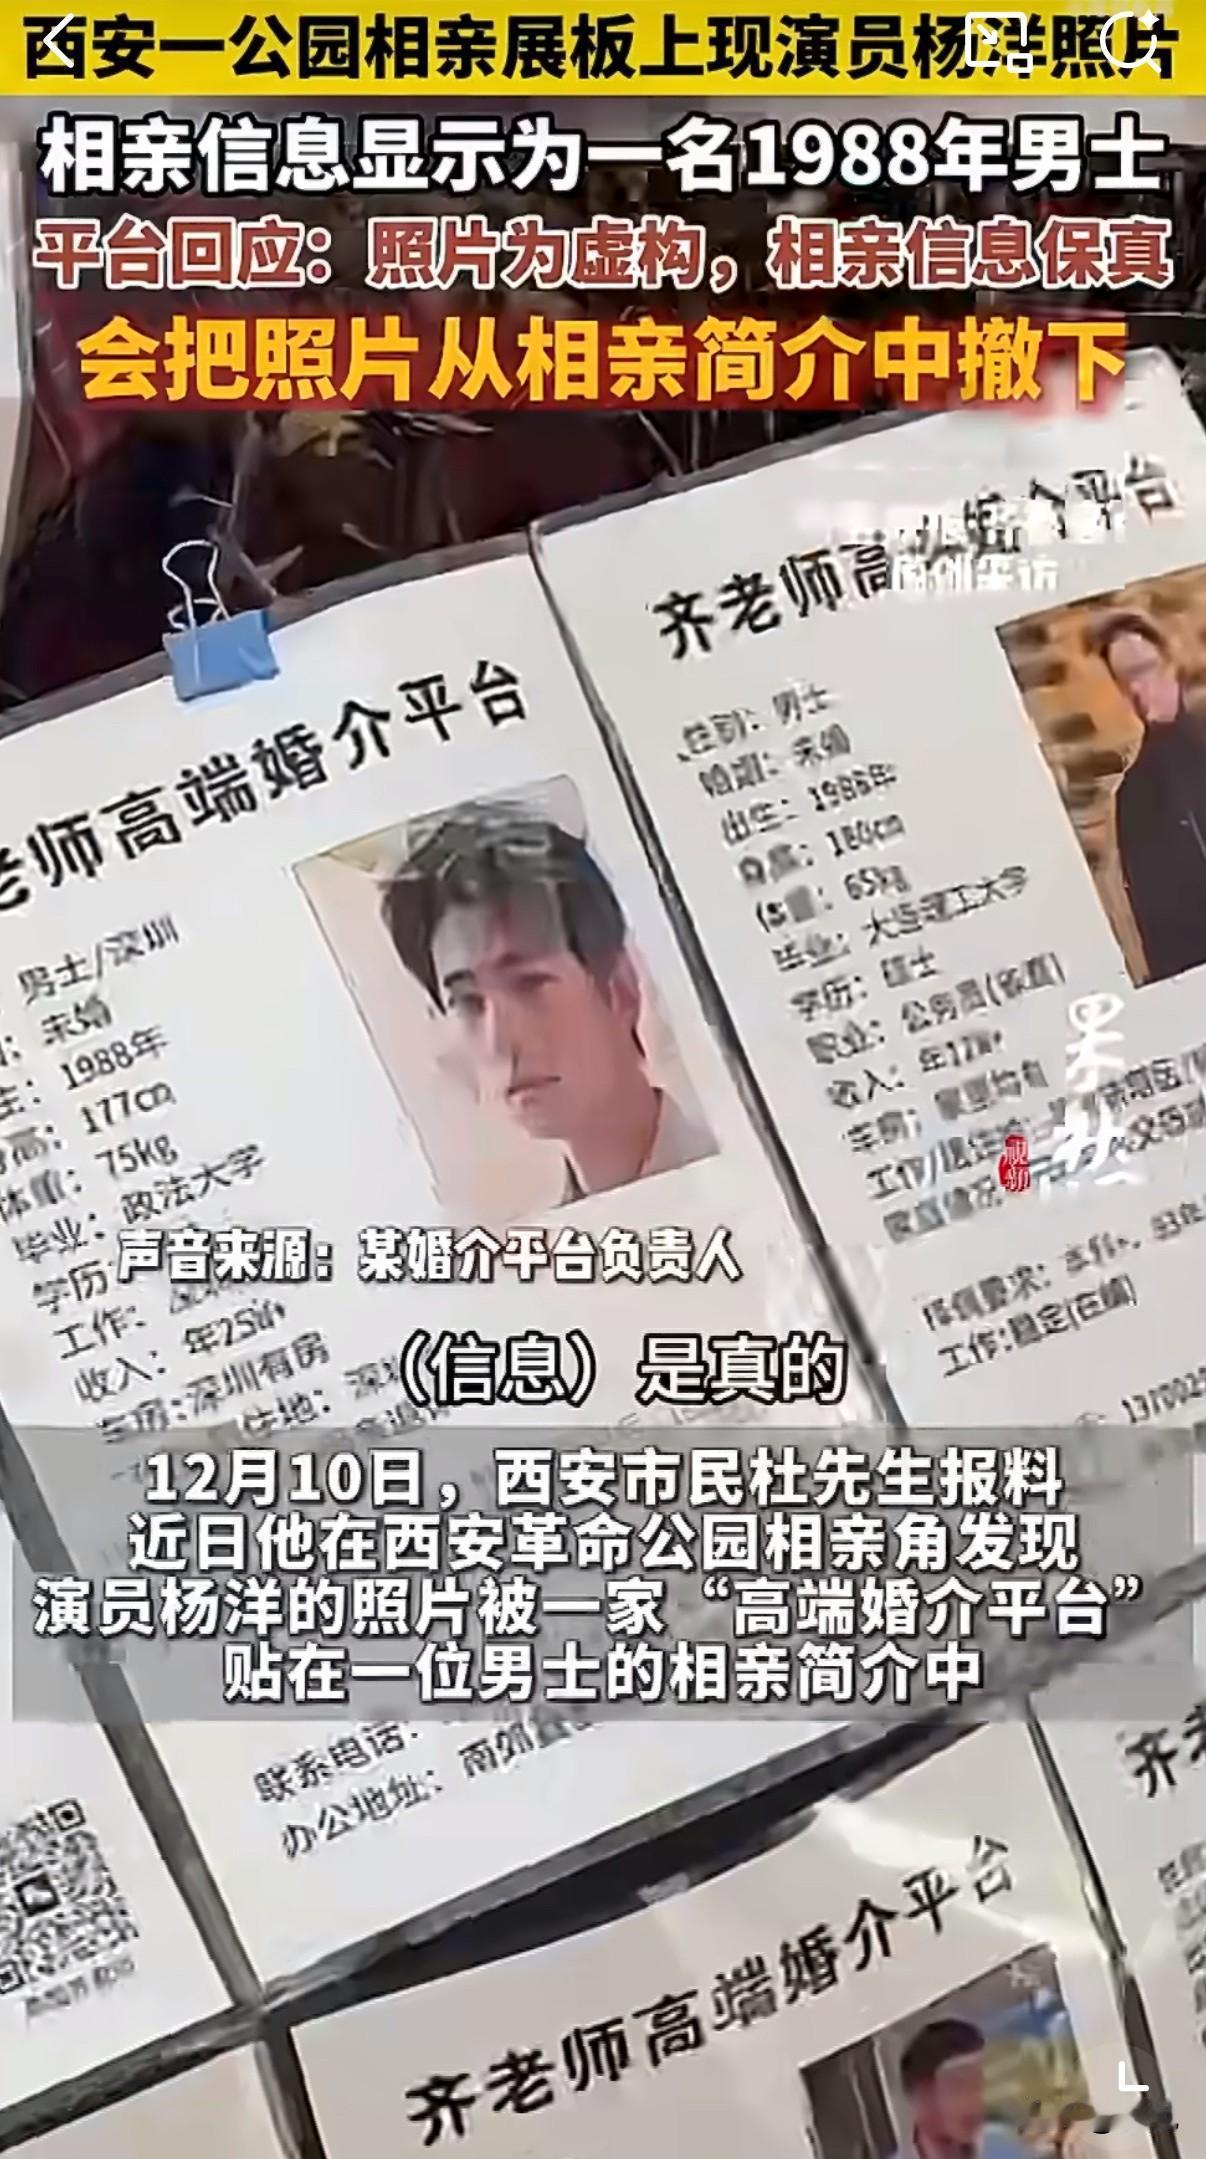 西安一公园相亲展板上现演员杨洋照片
相亲信息显示为一名1988年男士
平台回应：照片为虚构，相亲信息保真
会把照片从相亲简介中撤下
原创采访
老师高端婚介平台
男士/深圳
未婚
1988年
177cm
体重：75kg
毕业：政法大学
学历
工作：
收入：年25
车房：深圳有房
住地：深圳
齐老师高端婚介平台
性别：男士
婚姻：未婚
出生：1986年
身高：180cm
体重：65kg
毕业：大连理工大学
学历：硕士
职业：公务员(省直)
收入：年12W+
车房：家里均有
工作/居住地：
家庭情况
择偶要求：
工作：稳定(在编)
视频
声音来源：某婚介平台负责人
（信息）是真的
12月10日，西安市民杜先生报料
近日他在西安革命公园相亲角发现
演员杨洋的照片被一家“高端婚介平台”
贴在一位男士的相亲简介中
联系电话：
办公地址：南郊
齐老师高端婚介平台
齐老